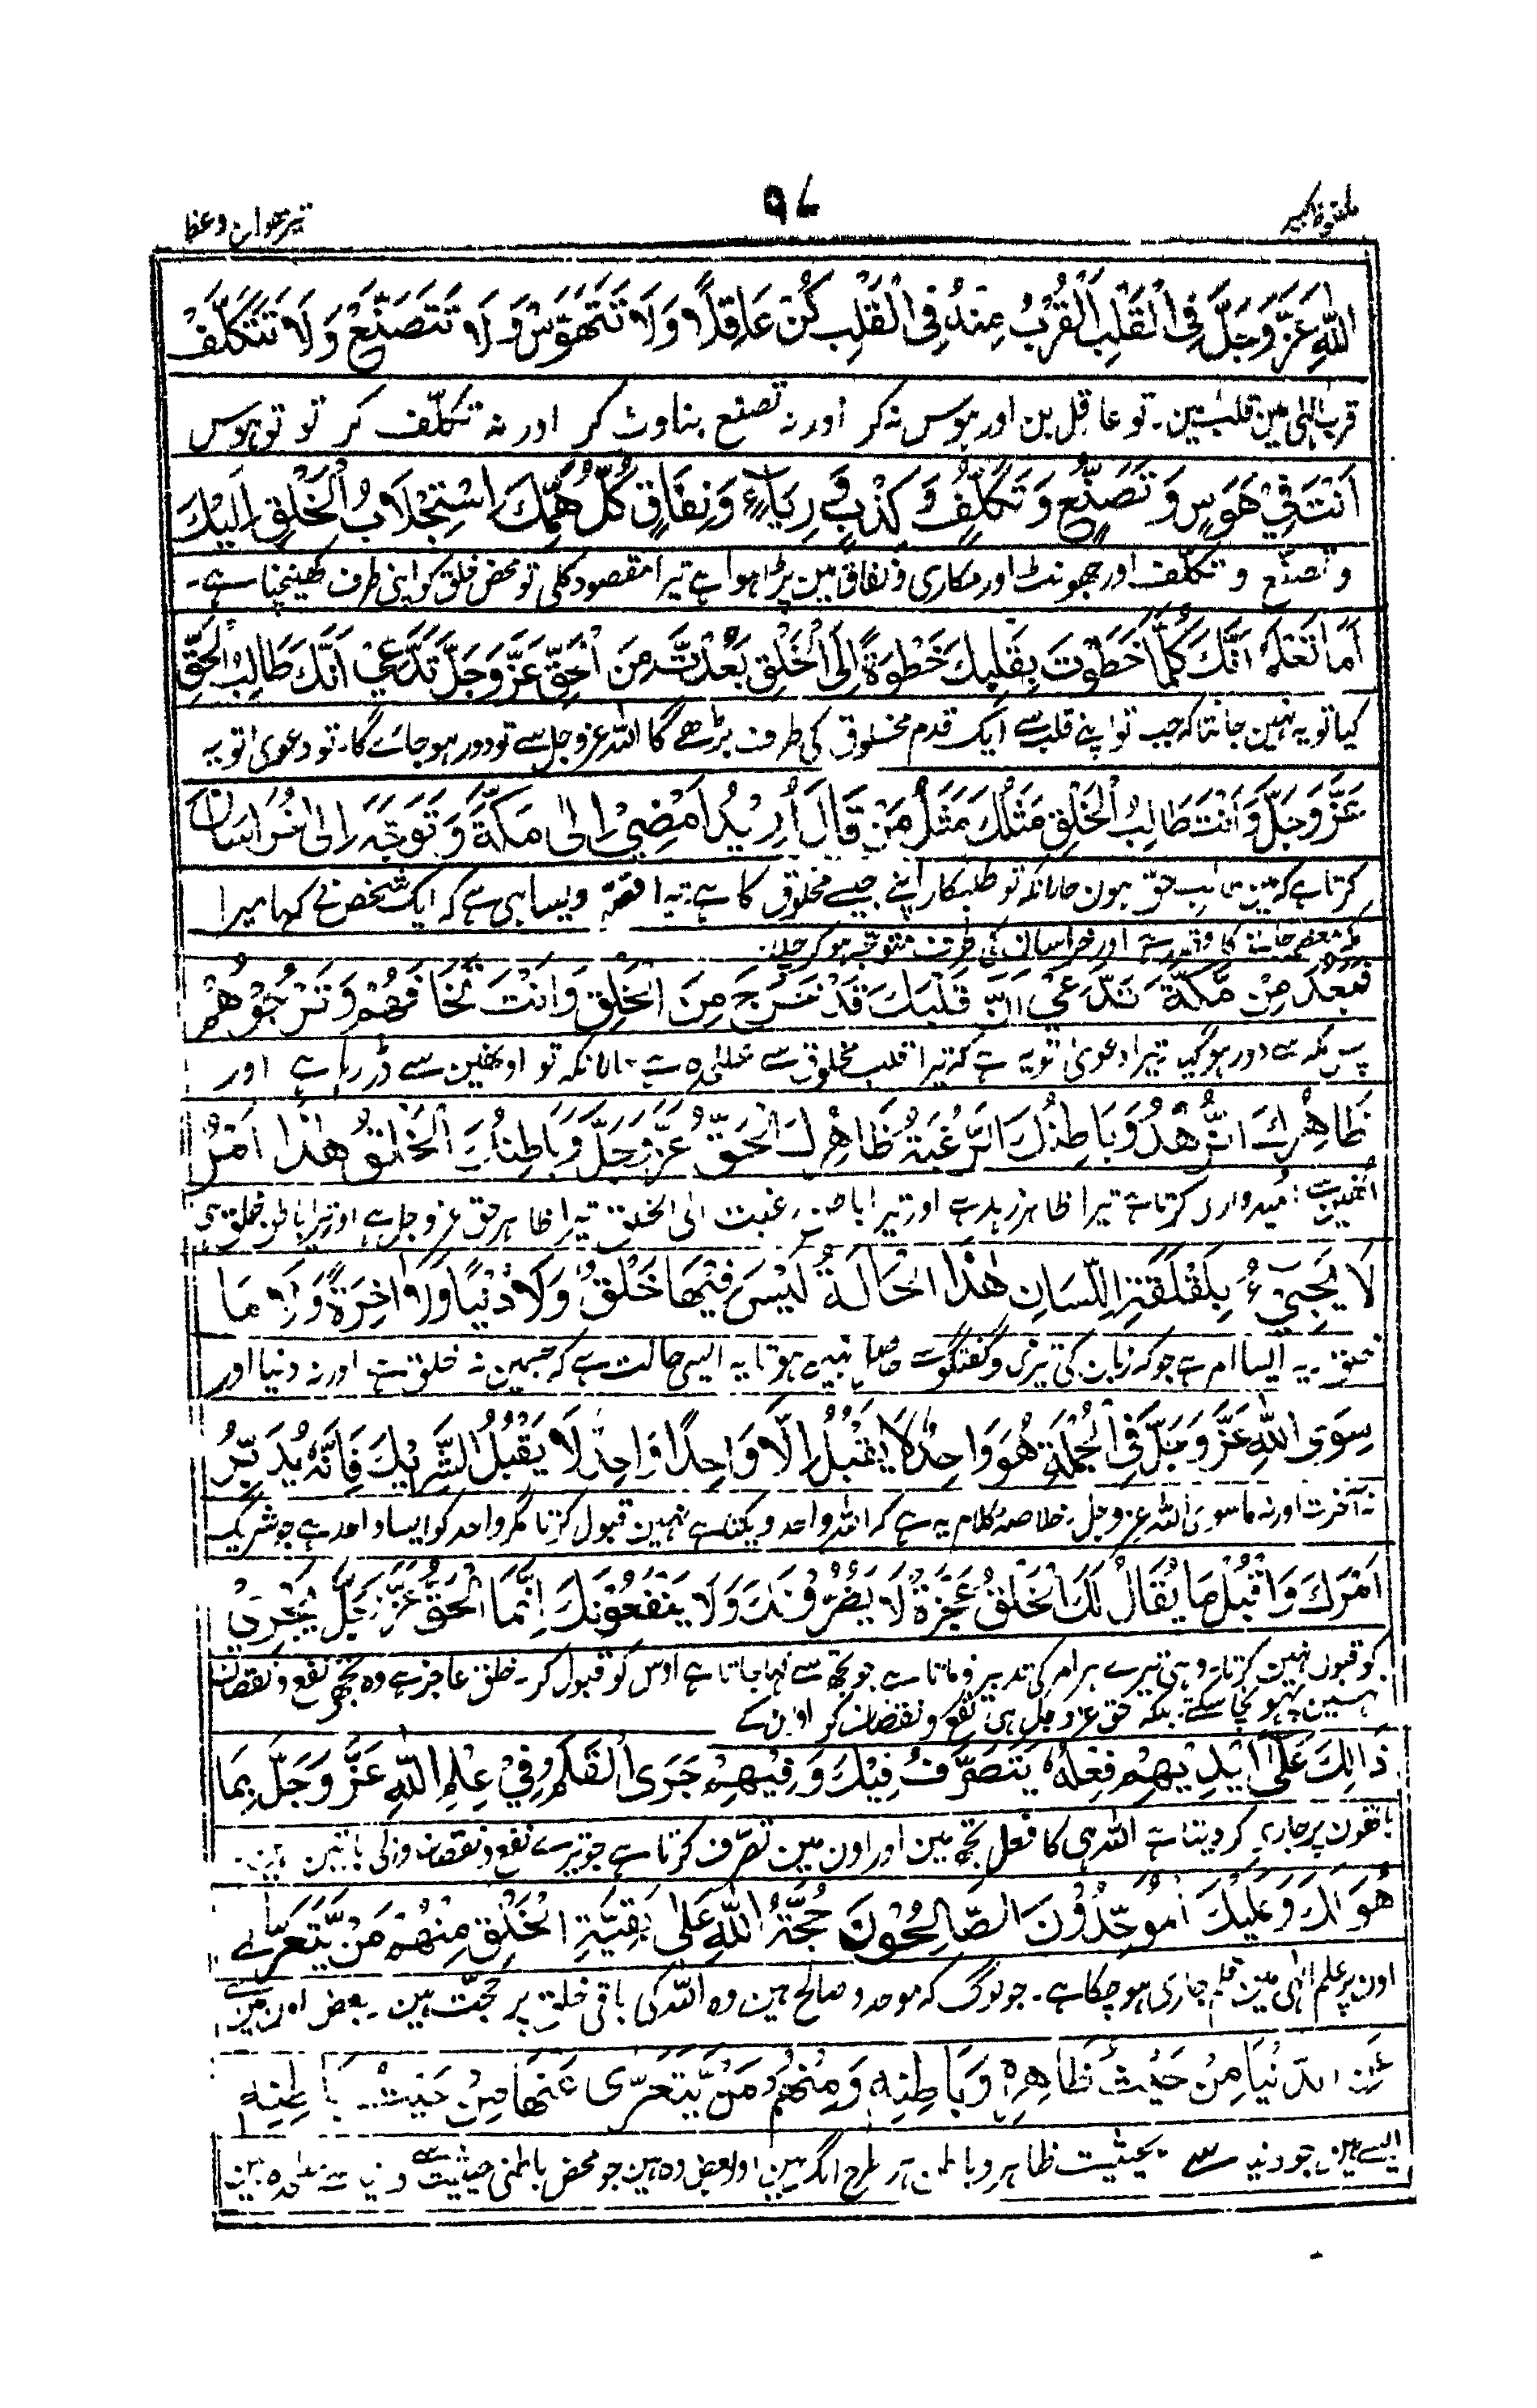 ۹۷
اللهِ عَزَّ وَجَلَّ فِي الْقَلْبِ الْقُرْبُ مِنْهُ فِي الْقَلْبِ كُنْ عَاقِلًا وَلَا تَتَهَوَّسْ وَلَا تَتَصَنَّعْ وَلَا تَتَكَلَّفْ
قرب الٰہی مین قلب مین۔ تو عاقل بن اور ہوس نہ کر اور نہ تصنع بناوٹ کر اور نہ تکلّف کر تو تو ہوس
اَنْتَ فِيْ هَوَسٍ وَتَصَنُّعٍ وَتَكَلُّفٍ وَّ كَذِبٍ وَّ رِيَاءٍ وَنِفَاقٍ كُلُّ هَمِّكَ اسْتِجْلَابُ الْخَلْقِ اِلَيْكَ
و تصنّع و تکلّف اور جھونٹ اور مکاری و نفاق مین پڑا ہوا ہے تیرا مقصود کلی تو محض خلق کو اپنی طرف کھینچنا ہے۔
اَمَا تَعْلَمُ اَنَّكَ كُلَّمَا خَطَوْتَ بِقَلْبِكَ خَطْوَةً اِلَى الْخَلْقِ بَعُدْتَّ مِنَ الْحَقِّ عَزَّ وَجَلَّ تَدَّعِيْ اَنَّكَ طَالِبُ الْحَقِّ
کیا تو یہ نہین جانتا کہ جب تو اپنے قلب سے ایک قدم مخلوق کی طرف بڑھے گا اللہ عز وجل سے تو دور ہو جائے گا۔ تو دعوی تو یہ
عَزَّ وَجَلَّ وَاَنْتَ طَالِبُ الْخَلْقِ مَثَلُكَ مَثَلُ مَنْ قَالَ اُرِيْدُ اَمْضِيْ اِلٰى مَكَّةَ وَتَوَجَّهَ اِلٰى خُرَاسَانَ
کرتا ہے کہ مین طالب حق ہون حالانکہ تو طلبکار اپنے جیسے مخلوق کا ہے۔ تیرا قصّہ ویسا ہی ہے کہ ایک شخص نے کہا میرا
مکہ معظمہ جانے کا قصد ہے اور خراسان کی طرف متوجہ ہو کر چلا۔
فَبَعُدَ مِنْ مَّكَّةَ تَدَّعِيْ اَنَّ قَلْبَكَ قَدْ خَرَجَ مِنَ الْخَلْقِ وَاَنْتَ تَخَافُهُمْ وَتَرْجُوْهُمْ
پس مکہ سے دور ہو گیا تیرا دعوی تو یہ ہے کہ تیرا قلب مخلوق سے علٰیحدہ ہے حالانکہ تو اونھین سے ڈر رہا ہے اور
ظَاهِرُكَ الزُّهْدُ وَبَاطِنُكَ الرَّغْبَةُ ظَاهِرُكَ الْحَقُّ عَزَّ وَجَلَّ وَبَاطِنُكَ الْخَلْقُ هٰذَا اَمْرٌ
اُنھین سے امیدواری کرتا ہے تیرا ظاہر زہد ہے اور تیرا باطن رغبت الی الخلق تیرا ظاہر حق عز وجل ہے اور تیرا باطن خلق ہی
لَا يَجِيْءُ بِلَقْلَقَةِ اللِّسَانِ هٰذَا الْحَالَةُ لَيْسَ فِيْهَا خَلْقٌ وَلَا دُنْيَا وَلَا اٰخِرَةٌ وَلَا مَا
خلق۔ یہ ایسا امر ہے جو کہ زبان کی تیزی و گفتگو سے حاصل نہین ہوتا یہ ایسی حالت ہے کہ جسمین نہ خلق ہے اور نہ دنیا اور
سِوَى اللهِ عَزَّ وَجَلَّ فِي الْجُمْلَةِ هُوَ وَاحِدٌ لَا يَقْبَلُ اِلَّا وَاحِدًا وَاحِدٌ لَا يَقْبَلُ الشَّرِيْكَ فَاِنَّهٗ يُدَبِّرُ
نہ آخرت اور نہ ماسوی اللہ عز وجل۔ خلاصہ کلام یہ ہے کہ اللہ واحد و یکتا ہے نہین قبول کرتا مگر واحد کو ایسا واحد ہے جو شریک
اَمْرَكَ وَاقْبَلْ مَا يُقَالُ لَكَ الْخَلْقُ عَجَزَةٌ لَا يَضُرُّوْنَكَ وَلَا يَنْفَعُوْنَكَ اِنَّمَا الْحَقُّ عَزَّ وَجَلَّ يُجْرِيْ
کو قبول نہین کرتا۔ وہی تیرے ہر امر کی تدبیر فرماتا ہے جو تجھ سے کہا جاتا ہے اوس کو قبول کر۔ خلق عاجز ہے وہ تجھے نفع و نقصان
نہین پہونچا سکتے۔ بلکہ حق عز وجل ہی نفع و نقصان کو اون کے
ذَالِكَ عَلٰى اَيْدِيْهِمْ فِعْلُهٗ يَتَصَرَّفُ فِيْكَ وَفِيْهِمْ جَرَى الْقَلَمُ فِيْ عِلْمِ اللهِ عَزَّ وَجَلَّ بِمَا
ہاتھون پر جاری کر دیتا ہے اللہ ہی کا فعل تجھ مین اور اون مین تصرّف کرتا ہے جو تیرے نفع و نقصان والی باتین ہین۔
هُوَ لَكَ وَعَلَيْكَ الْمُوَحِّدُوْنَ الصَّالِحُوْنَ حُجَّةُ اللهِ عَلٰى بَقِيَّةِ الْخَلْقِ مِنْهُمْ مَنْ يَّتَعَرّٰى
اون پر علم الٰہی مین قلم جاری ہو چکا ہے۔ جو لوگ کہ موحد و صالح ہین وہ اللہ کی باقی خلق پر حجّت ہین۔ بعض اون مین سے
عَنِ الدُّنْيَا مِنْ حَيْثُ ظَاهِرِهٖ وَبَاطِنِهٖ وَمِنْهُمْ مَنْ يَّتَعَرّٰى عَنْهَا مِنْ حَيْثُ بَاطِنِهٖ
ایسے ہین جو دنیا سے بحیثیت ظاہر و باطن ہر طرح الگ ہین اور بعض وہ ہین جو محض باطنی حیثیت سے دنیا سے علٰیحدہ ہین